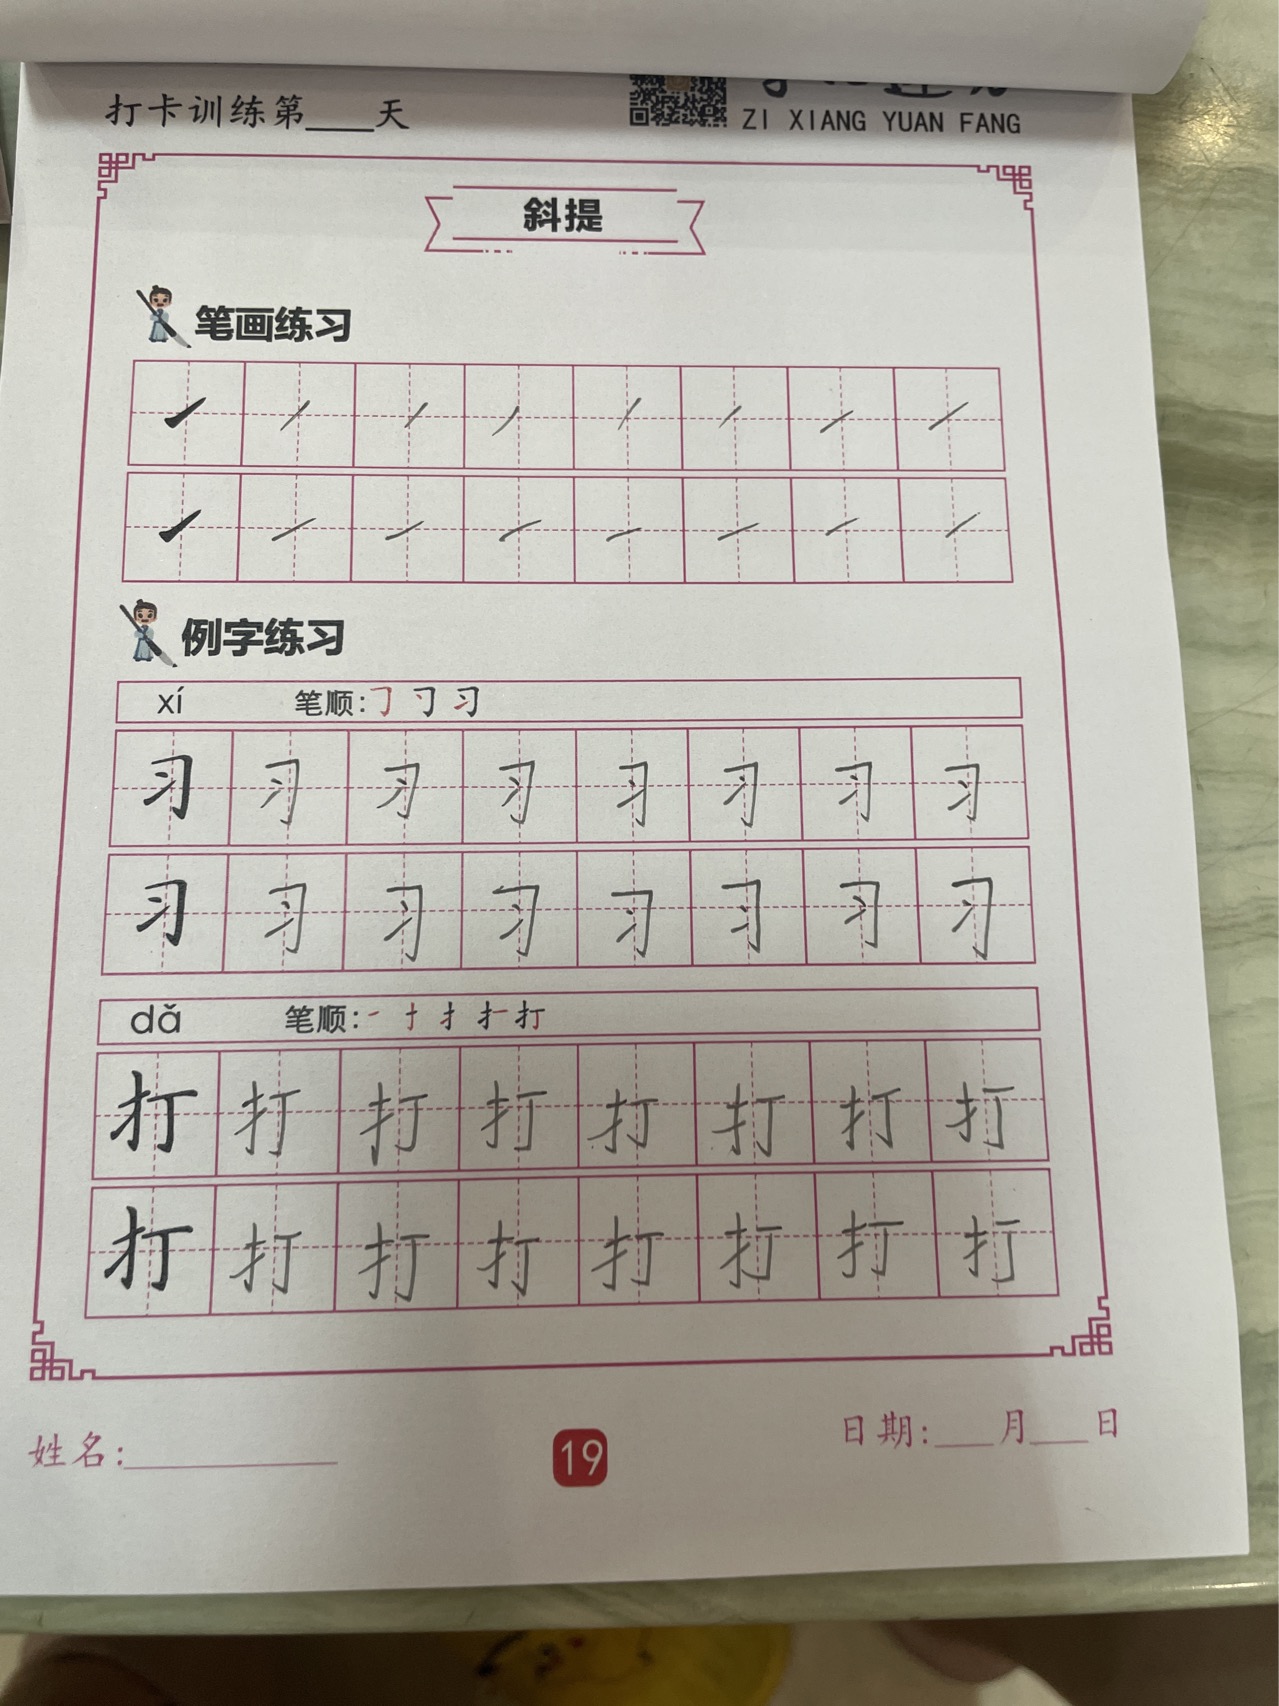 打卡训练第____天
ZI XIANG YUAN FANG
斜提
笔画练习
例字练习
xí 笔顺:㇆ 习
习 习 习 习 习 习 习 习
习 习 习 习 习 习 习 习
dǎ 笔顺:一 扌 打
打 打 打 打 打 打 打 打
打 打 打 打 打 打 打 打
姓名:__________
19
日期:___月___日